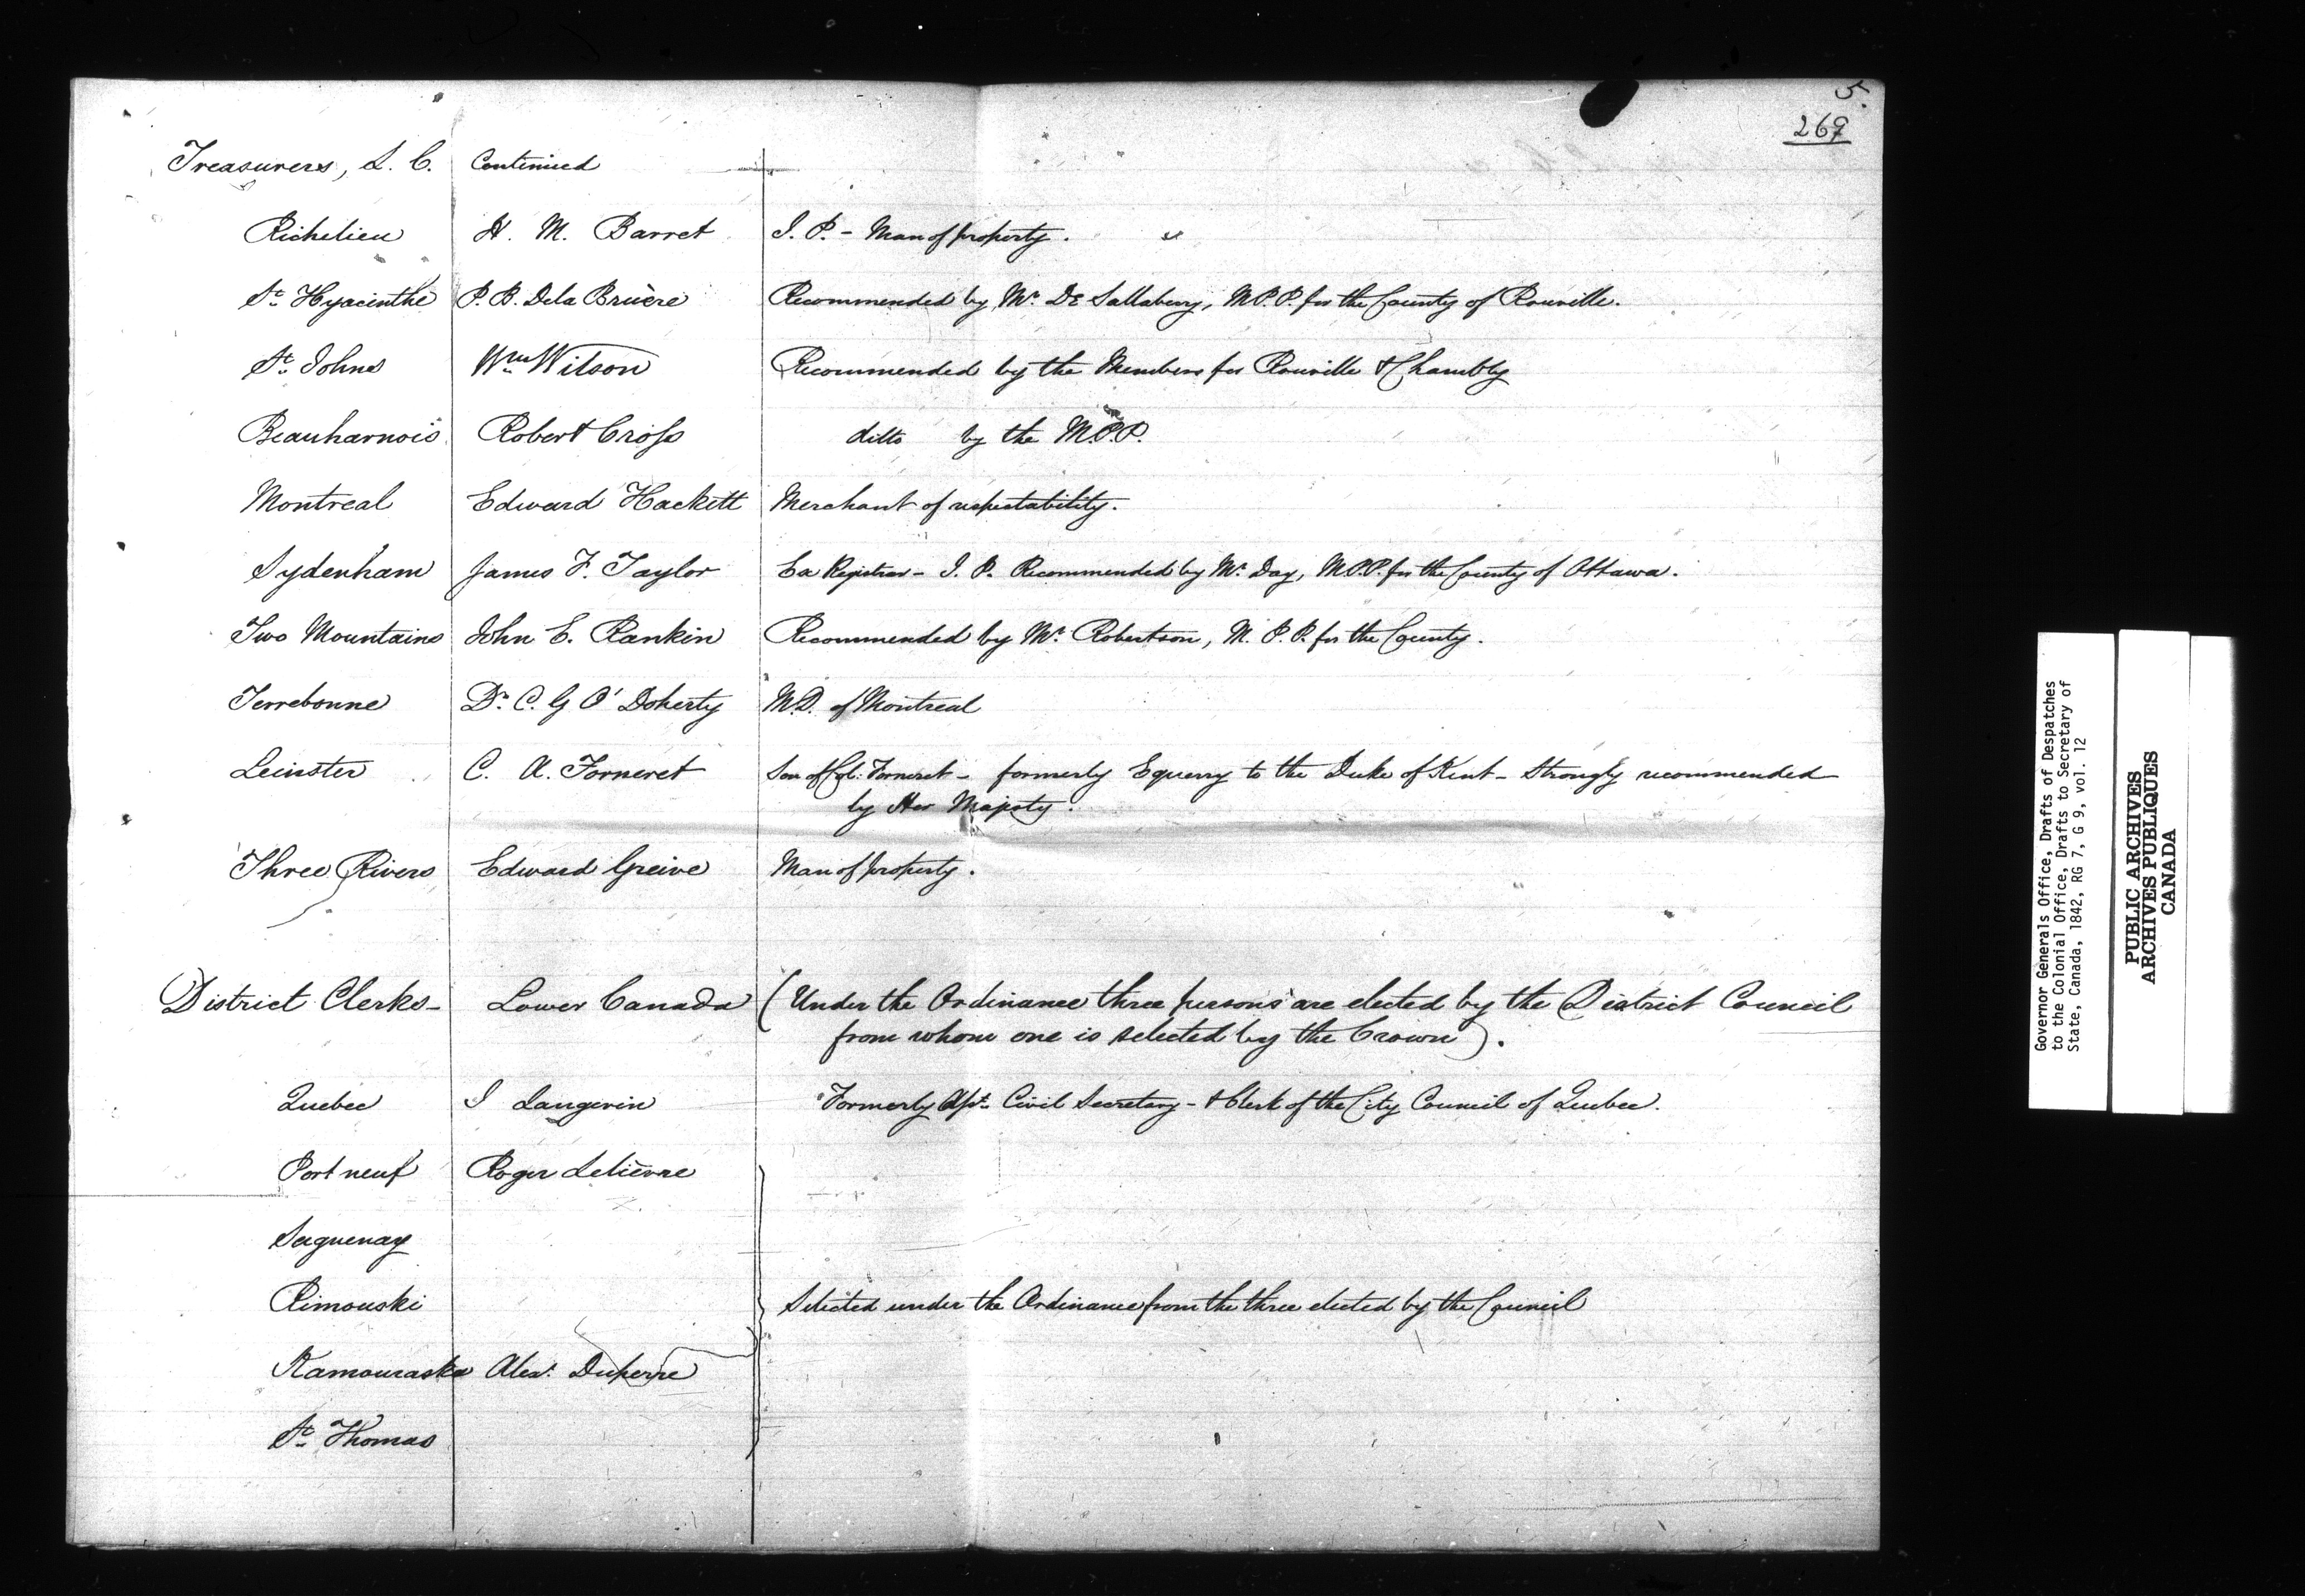 5.
269
Treasurers, L. C. Continued
Richelieu H. M. Barret J. P. - Man of property.
St. Hyacinthe P. B. De la Bruère Recommended by Mr. De Sallabery, M.P.P. for the County of Rouville.
St. Johns Wm Wilson Recommended by the Members for Rouville & Chambly
Beauharnois Robert Cross ditto by the M.P.P.
Montreal Edward Hackett Merchant of respectability.
Sydenham James F. Taylor Ex Registrar - J. P. Recommended by Mr. Day, M.P.P. for the County of Ottawa.
Two Mountains John E. Rankin Recommended by Mr. Robertson, M. P. P. for the County.
Terrebonne Dr. C. G O'Doherty M.D. of Montreal
Leinster C. A. Forneret Son of Col: Forneret - formerly Equerry to the Duke of Kent - Strongly recommended
by Her Majesty.
Three Rivers Edward Greive Man of property.
District Clerks - Lower Canada (Under the Ordinance three persons are elected by the District Council
from whom one is selected by the Crown).
Quebec J Langevin Formerly Asst. Civil Secretary - & Clerk of the City Council of Quebec.
Port neuf Roger Lelièvre
Saguenay
Rimouski Selected under the Ordinance from the three elected by the Council
Kamouraska Alexr. Duperre
St. Thomas
Governor Generals Office, Drafts of Despatches
to the Colonial Office, Drafts to Secretary of
State, Canada, 1842, RG 7, G 9, vol. 12
PUBLIC ARCHIVES
ARCHIVES PUBLIQUES
CANADA